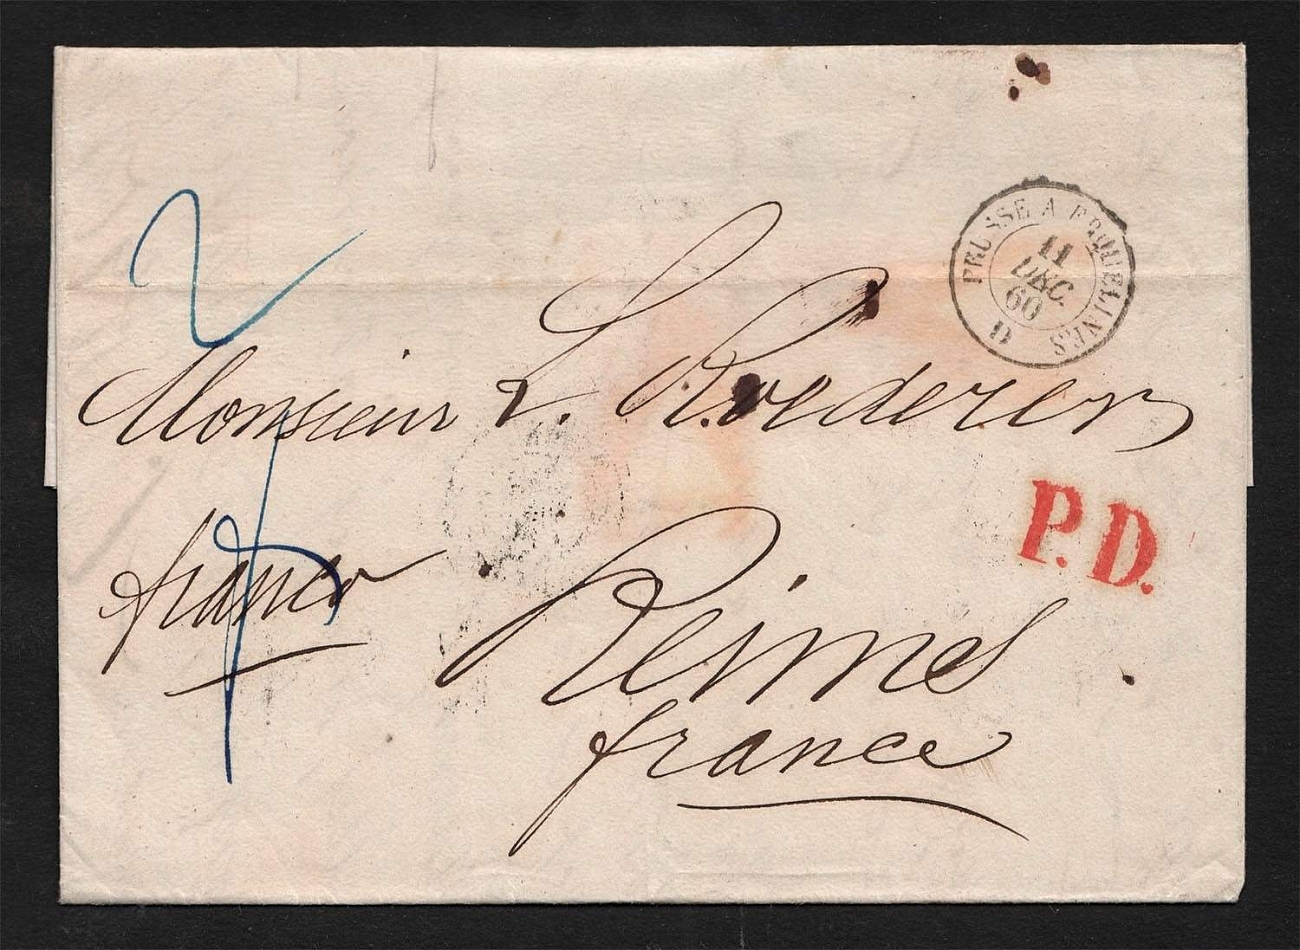 2
PRUSSE A ERQUELINES
11
DEC.
60
D
Monsieur L. Roederer
P.D.
franco
Reims
france